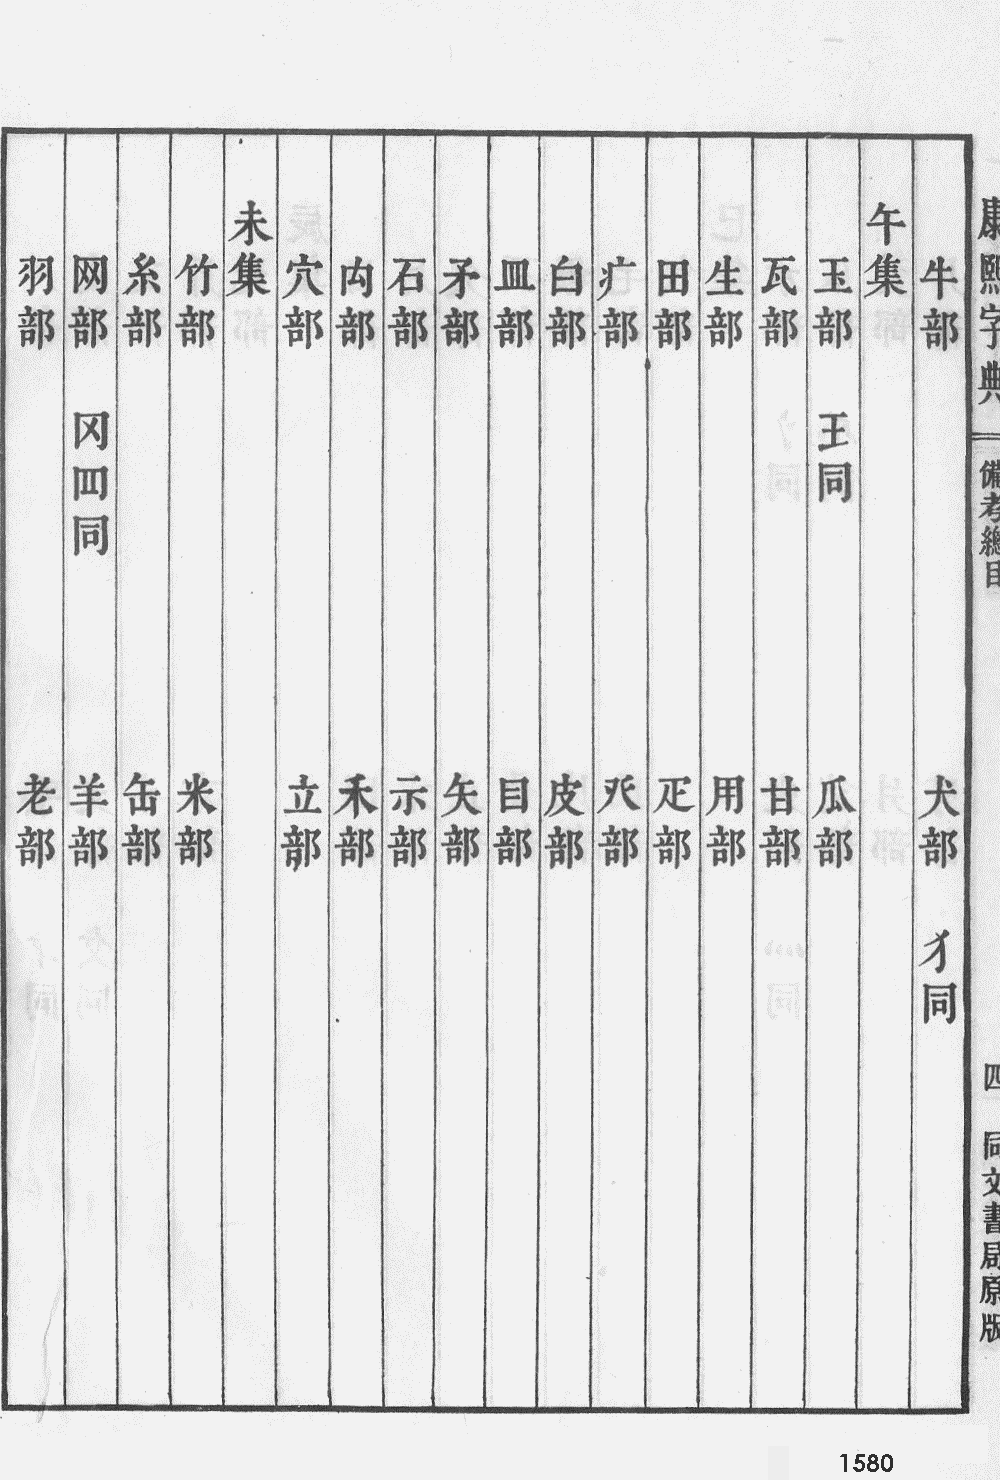 康熙字典 備考總目 四 同文書局原版
牛部 犬部 犭同
午集
玉部 王同 瓜部
瓦部 甘部
生部 用部
田部 疋部
疒部 癶部
白部 皮部
皿部 目部
矛部 矢部
石部 示部
禸部 禾部
穴部 立部
未集
竹部 米部
糸部 缶部
网部 冈罒同 羊部
羽部 老部
1580